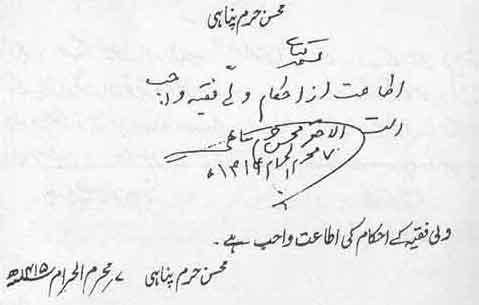 محسن حرم پناہی
بسمہ تعالی
اطاعت از احکام ولی فقیه واجب
است
الاحقر محسن حرم پناهی
۷ محرم الحرام ۱۴۱۵
ولی فقیہ کے احکام کی اطاعت واجب ہے۔
محسن حرم پناہی ۷ محرم الحرام ۱۴۱۵ھ